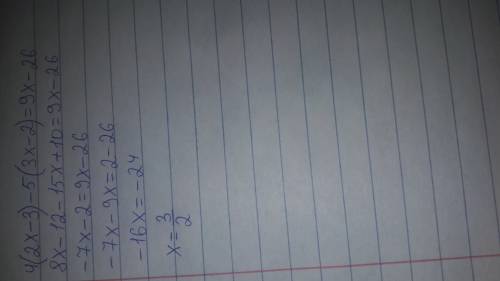 4(2x-3)-5(3x-2)=9x-26
8x-12-15x+10=9x-26
-7x-2=9x-26
-7x-9x=2-26
-16x=-24
x=3/2